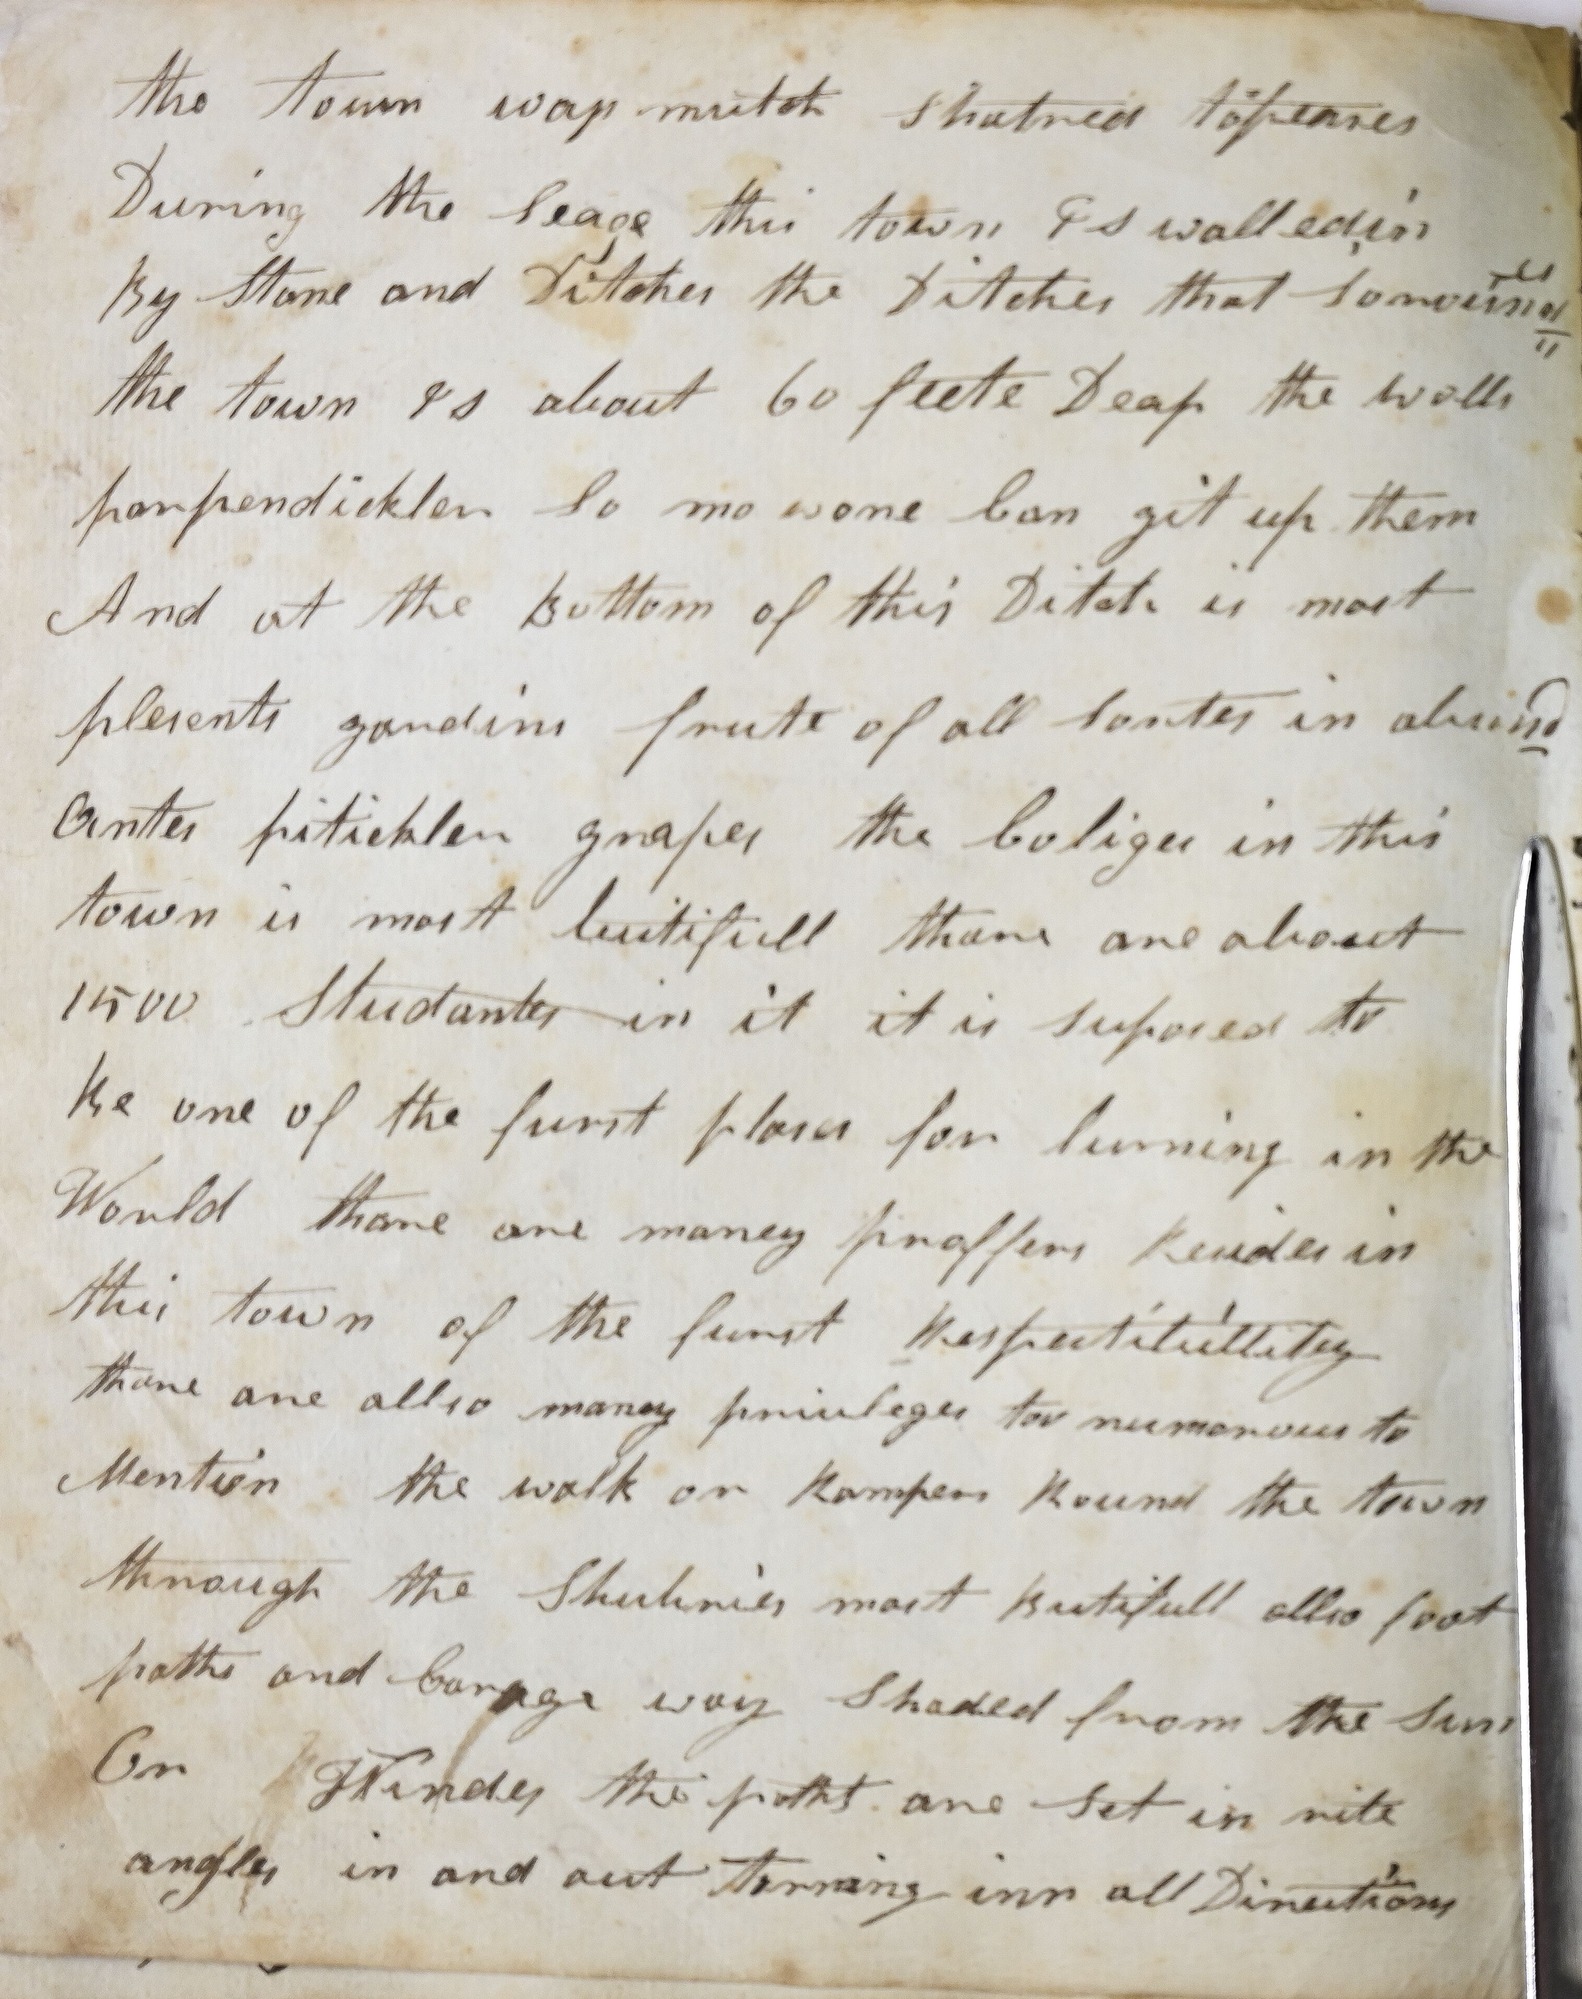 the town wap mutch shatred topeaces
During the Seage this town Is walledin
By Stone and Ditches the Ditches that Soround
the town Is about 60 feete Deap the walls
parpendickler So no wone Can git up them
And at the Bottom of this Ditch is most
plesents gardins frute of all Sortes in abund
antes pitickler grapes the Coliges in this
town is most butifull thare are about
1500 Studantes in it it is suposed to
Be one of the furst plases for lurning in the
World thare are maney proffers Resides in
this town of the furst Respectibillitey
thare are allso maney privleges too numarous to
Mention the walk or Rampers Round the town
through the Shubries most Butifull allso foot
paths and Carage way Shaded from the Sun
Or Windes the paths are Set in rite
angles in and out Torning inn all Directions